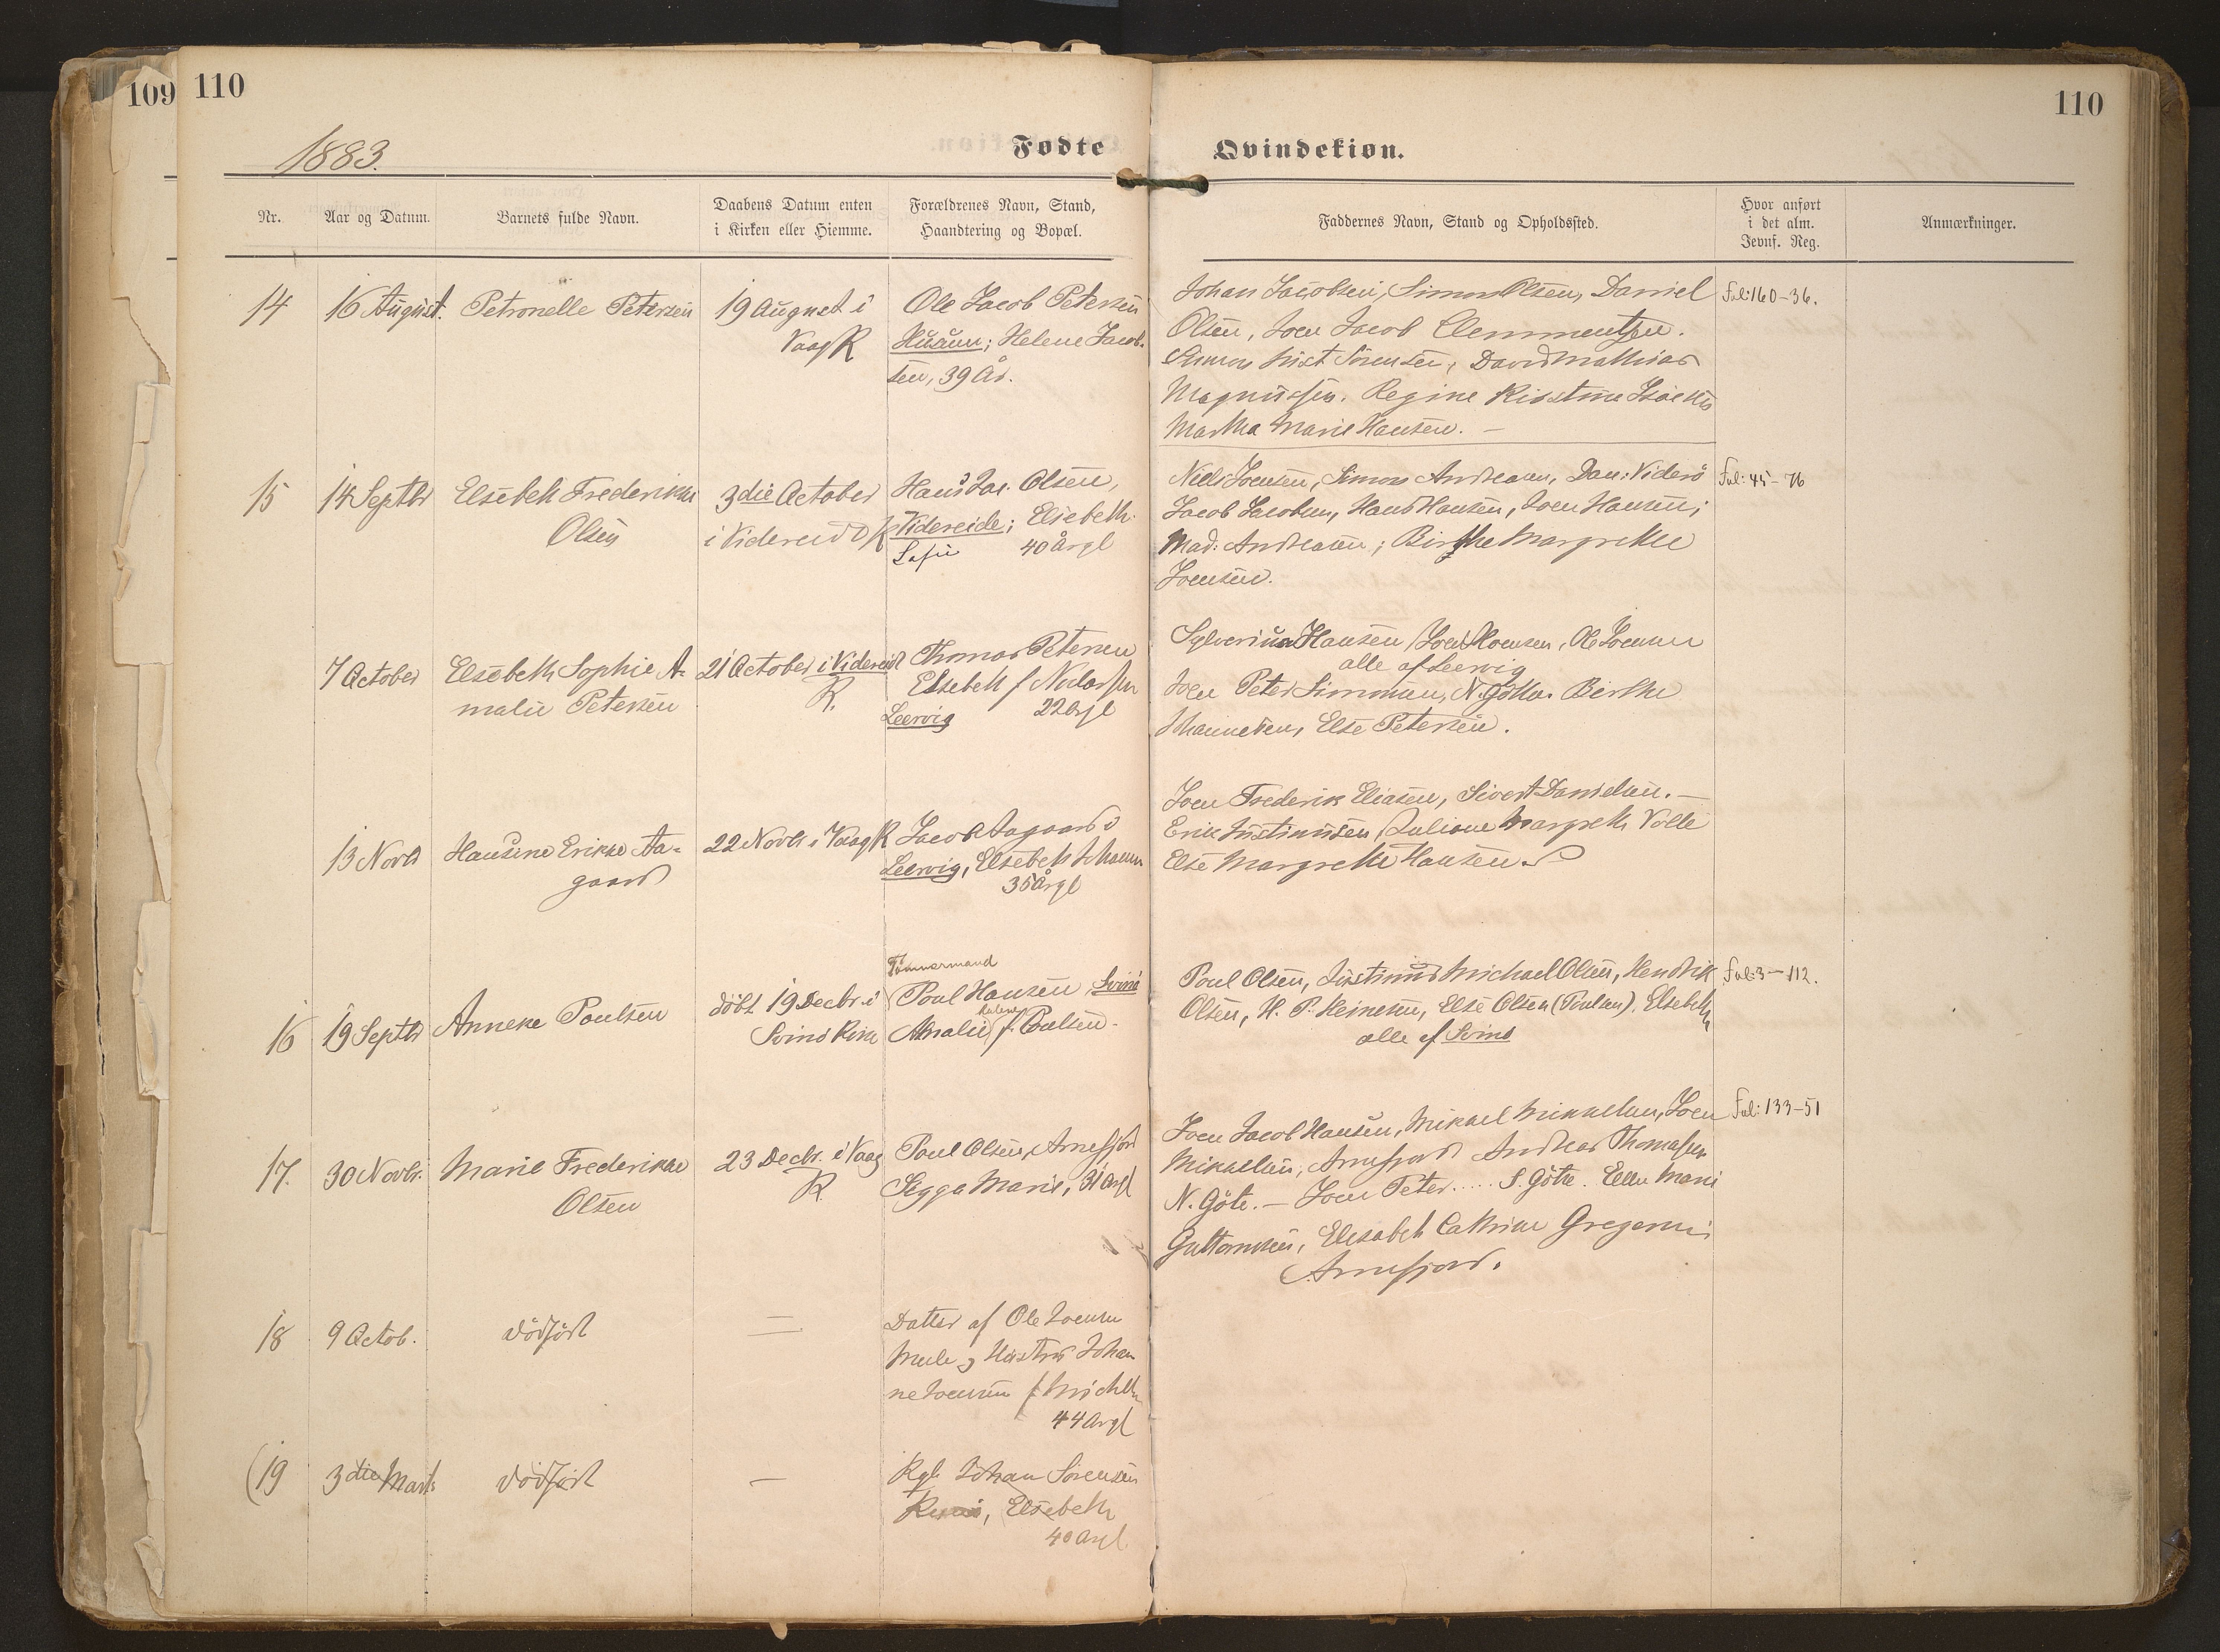 109 110
110
1883.
Fødte
Qvindekiøn.
Nr.
Aar og Datum.
Barnets fulde Navn.
Daabens Datum enten
i Kirken eller Hiemme.
Forældrenes Navn, Stand,
Haandtering og Bopæl.
Faddernes Navn, Stand og Opholdssted.
Hvor anført
i det alm.
Jevnf. Reg.
Anmærkninger.
14
16 August.
Petronelle Petersen
19 August i
Vaag K
Ole Jacob Petersen
Husum; Helene Jacob-
sen, 39 År.
Johan Jacobsen, Simon Olsen, Daniel
Olsen, Joen Jacob Clemmentsen.
Simon Sørensen, David Mathias
Magnussen. Regine Kirstine
Martha Marie Hansen. —
Fol: 160-36.
15
14 Septbr
Elsebeth Frederikke
Olsen
3die October
i Videreid K
Hans Jac. Olsen,
Videreide; Elsebeth
Sofie 40 Årgl
Niels Joensen, Simon Andreasen, Dan: Viderø
Jacob Jacobsen, Hans Hansen, Joen Hansen;
Mad: Andreasen; Birthe Margrethe
Joensen.
Fol: 45-76
7 October
Elsebeth Sophie A-
malie Petersen
21 October i Videreid
K.
Thomas Petersen
Elsebeth f
Leervig 22 Årgl
Sylverius Hansen, Joen Joensen, Ole Joensen
alle af Leervig
Joen Peter Simonsen, N. Göthe. Birthe
Else Petersen.
13 Novb
Hansine Erikke Aa-
gaard
22 Novb i Vaag K
Jacob Aagaard
Leervig, Elsebeth Johanne
35 Årgl
Joen Frederik Eliasen, Sivert Danielsen. —
Erik Justinussen, Juliane Margreth Volle
Else Margrethe Hansen
16
19 Septbr
Anneke Poulsen
döbt 19 Decbr. i
Svinö Kirke
Tömmermand
Poul Hansen, Svinö
Malene
Amalie f. Poulsen.
Poul Olsen, Justinus Michael Olsen, Hendrik
Olsen, H. P. Heinesen, Else Olsen (Poulsen), Elsebeth
alle af Svinö
Fol: 3-112.
17.
30 Novbr.
Marie Frederikke
Olsen
23 Decbr. i Vaag
K
Poul Olsen, Arnefjord
Sigga Marie, 31 Årgl
Joen Jacob Hansen, Mikael Mikkelsen, Joen
Mikkelsen, Arnefjord Andreas Thomassen
N. Göte. — Joen Peter ..... S. Göthe. Ellen Marie
Guttormsen, Elisabeth Cathrine Gregersen
Arnefjord.
Fol: 133-51
18
9 Octob.
dödfödt
=
Datter af Ole Joensen
Mule og Hustru Johan
ne Joensen f. Michelsen
44 Årgl
(19
3die Marts
dödfödt
—
Kgb. Johan Sörensen
Elsebeth
40 Årgl.